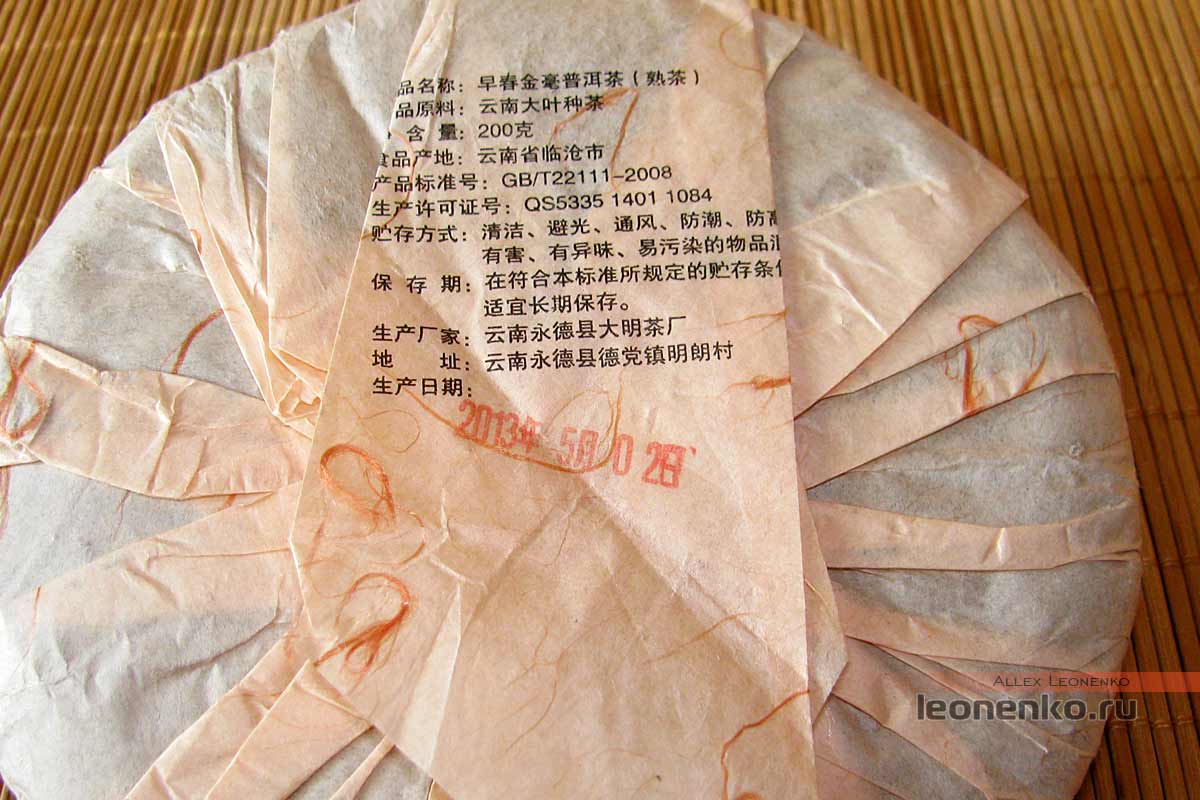 品名称：早春金毫普洱茶（熟茶）
品原料：云南大叶种茶
含 量：200克
食品产地：云南省临沧市
产品标准号：GB/T22111-2008
生产许可证号：QS5335 1401 1084
贮存方式：清洁、避光、通风、防潮、防高
有害、有异味、易污染的物品混
保 存 期：在符合本标准所规定的贮存条件
适宜长期保存。
生产厂家：云南永德县大明茶厂
地 址：云南永德县德党镇明朗村
生产日期：
2013年 5月0 2日
ALLEX LEONENKO
leonenko.ru